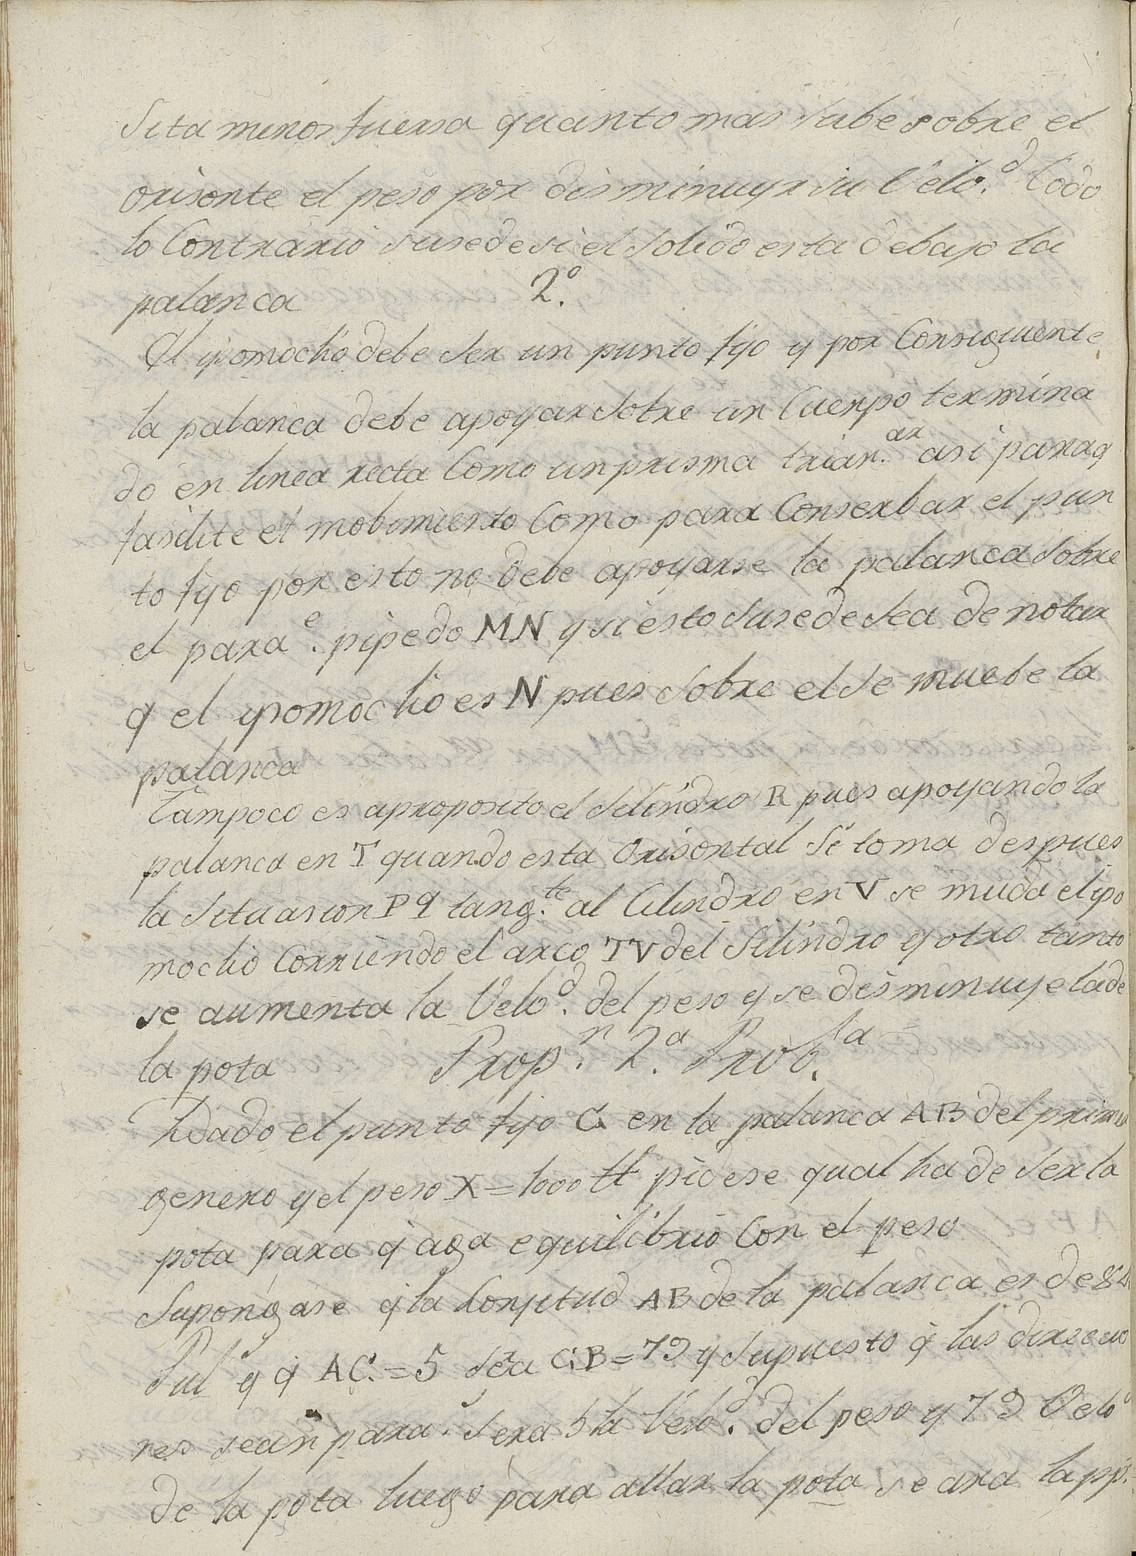 sita menos fuersa quanto mas sube sobre el
orisonte el peso por disminuyr su Velo.d todo
lo Contrario susede si el solido esta debajo la
palanca 2.o
El ipomoclio debe ser un punto fijo y por Consiguiente
la palanca debe apoyar sobre un Cuerpo termina
do en linea recta Como un prisma trian.ar asi para q
fasilite el mobimiento Como para Conserbar el pun
to fijo por esto no debe apoyarse la palanca sobre
el para.e pipedo MN y si esto susede sea de notar
q el ipomoclio es N pues sobre el se muebe la
palanca
Tampoco es aproposito el Silindro R pues apoyando la
palanca en T quando esta Orisontal si toma despues
la situasion P q tang.te al Cilindro en V se muda el ipo
moclio Corriendo el arco TV del Silindro y otro tanto
se aumenta la Velo.d del peso y se disminuye la de
la pota Prop.n 2.a Prob.a
Dado el punto fijo C en la palanca AB del primer
genero y el peso X = 1000 tt pidese qual ha de ser la
pota para q aga equilibrio Con el peso
Supongase q la Lonjitud AB de la palanca es de 84
Pul.s y q AC = 5 sera CB = 79 y supuesto q las direccio
nes sean para.s sera 5 la Velo.d del peso y 79 Velo.d
de la pota luego para allar la pota se ara la pp.